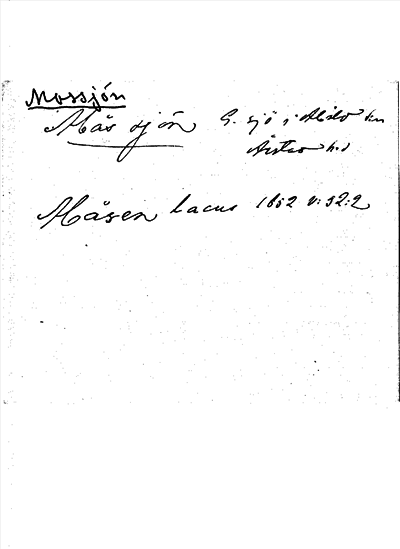 Mossjön
Mås sjön G. sjö i
Åsbo hd
Måsen lacus 1652 v: 32:2